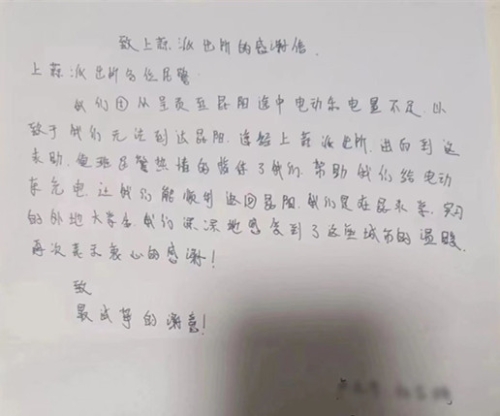 致上蒜派出所的感谢信.
上蒜派出所各位民警
我们①从呈贡至昆阳途中电动车电量不足,以
致于我们无法到达昆阳.途经上蒜派出所,进而到这
求助.值班民警热情的接待了我们,帮助我们给电动
车充电让我们能顺利返回昆阳.我们是在昆求学,实习
的外地大学生.我们深深地感受到了这座城市的温暖.
再次表示衷心的感谢!
致
最诚挚的谢意!